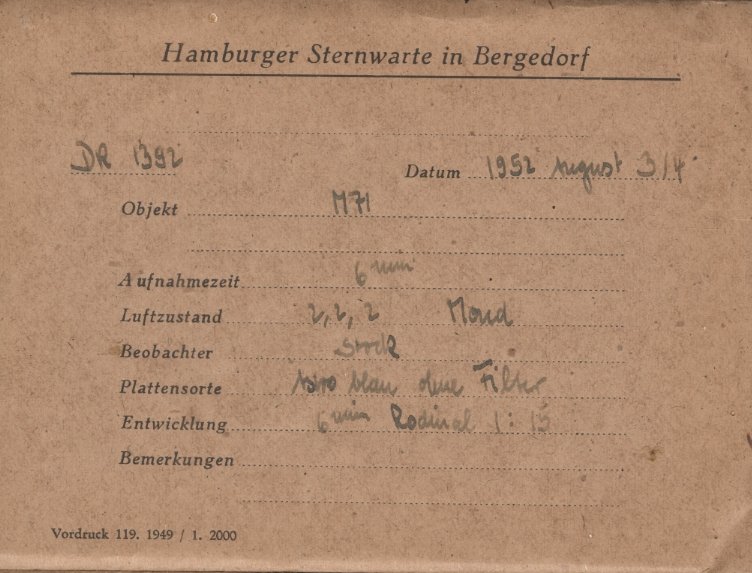 Hamburger Sternwarte in Bergedorf
DR 1392 Datum 1952 August 3/4
Objekt M71
Aufnahmezeit 6 min
Luftzustand 2, 2, 2 Mond
Beobachter Stock
Plattensorte Astro blau ohne Filter
Entwicklung 6 min Rodinal 1:15
Bemerkungen
Vordruck 119. 1949 / 1. 2000